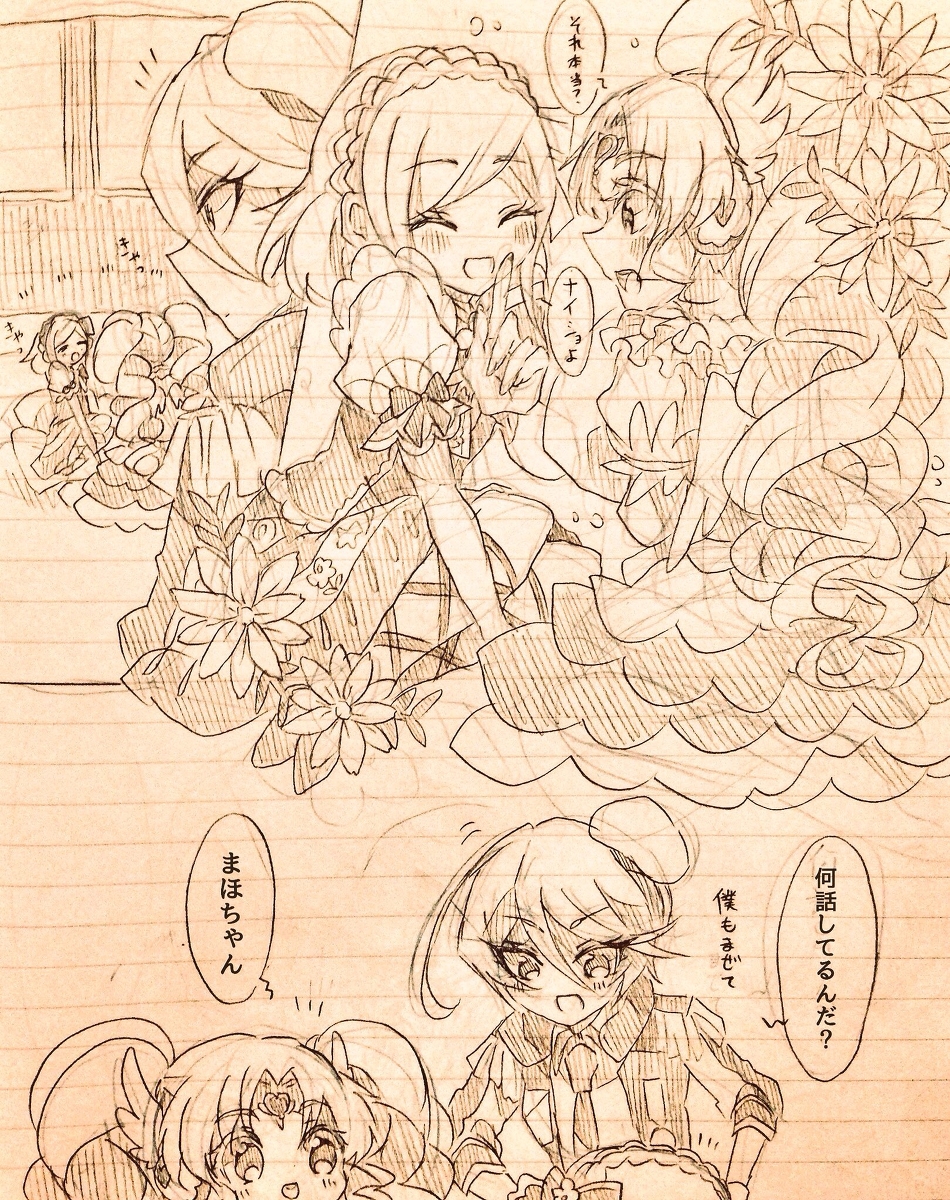 それ本当?
ナイショよ
きゃっ
きゃっ
何話してるんだ?
僕もまぜて
まほちゃん